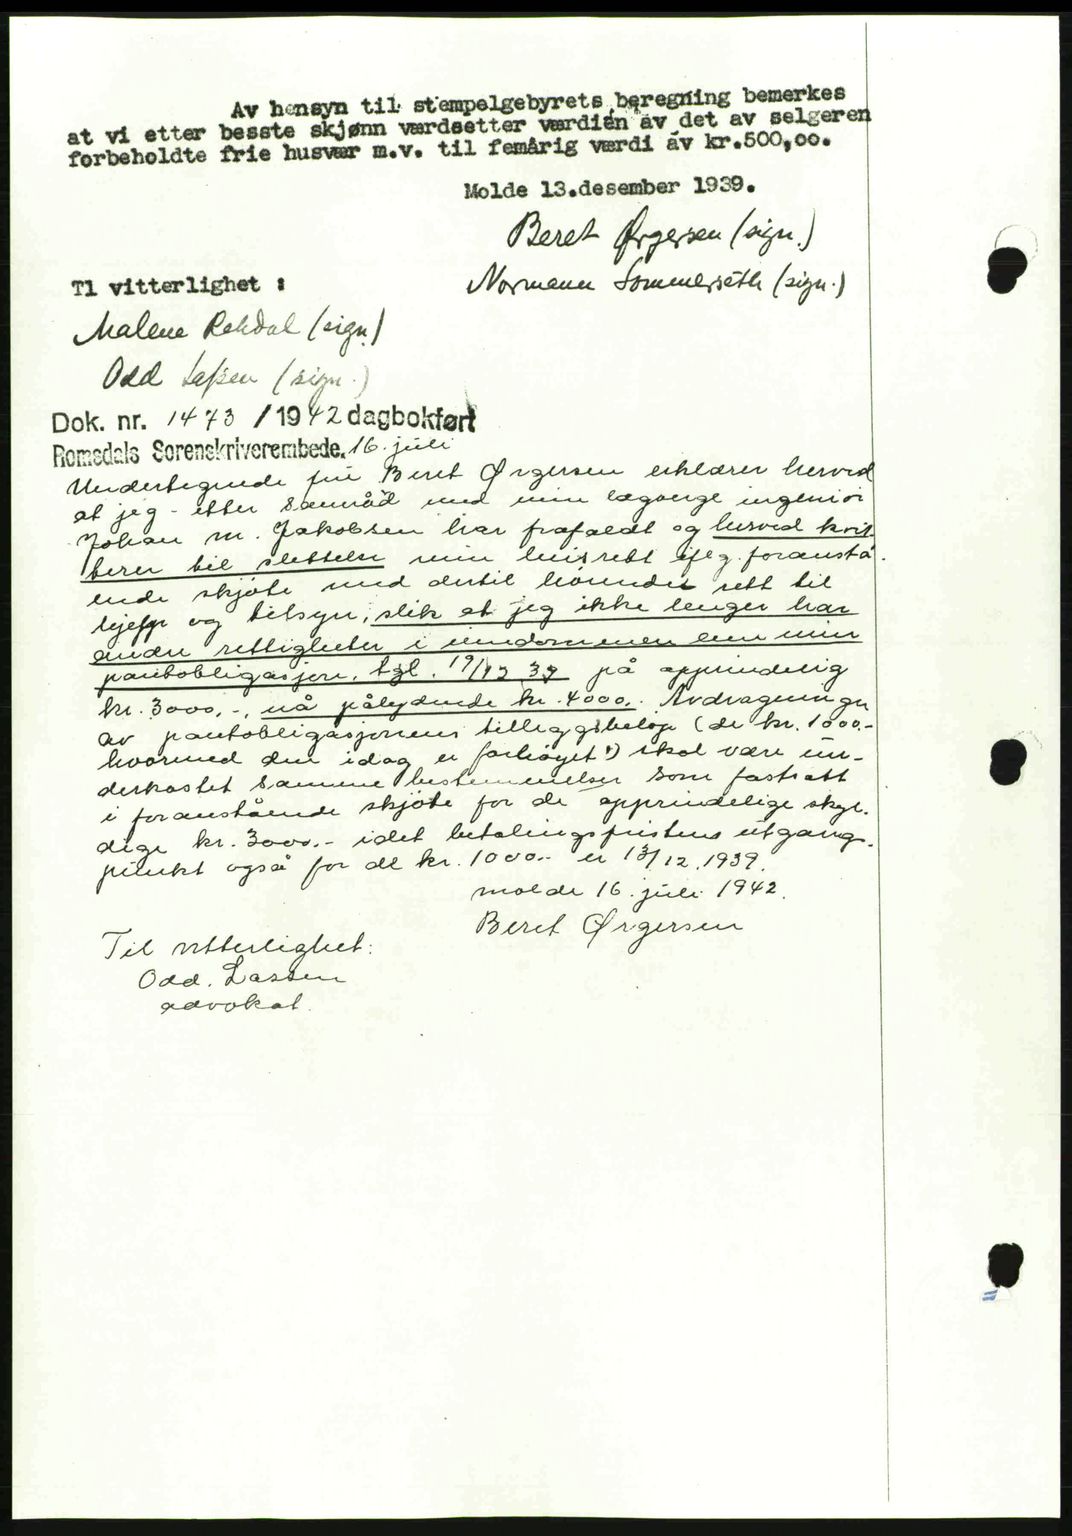 Av hensyn til stempelgebyrets beregning bemerkes
at vi etter besste skjønn værdsetter værdien av det av selgeren
forbeholdte frie husvær m.v. til femårig værdi av kr.500,oo.
Molde 13.desember 1939.
Beret Ørgersen (sign.)
Normann Sommerseth (sign.)
Tl vitterlighet :
Malene Rekdal (sign.)
Odd Lassen (sign.)
Dok. nr. 1473 / 1942 dagbokført
Romsdals Sorenskriverembede. 16. juli
Undertegnede fru Beret Ørgersen erklærer herved
at jeg - etter samråd med min lagverge ingeniør
Johan M. Jakobsen har frafaldt og herved kvit-
terer til slettelse min leierett efg. foranstå-
ende skjøte med dertil hørende rett til
hjelp og tilsyn, slik at jeg ikke lenger har
andre rettigheter i eiendommen enn min
pantobligasjon, tgl. 19/12 39 på opprindelig
kr. 3000.-, nå pålydende kr. 4000.- Avdragningen
av pantobligasjonens tilleggsbeløp (de kr. 1000.-
hvormed den idag er forhøyet) skal være un-
derkastet samme bestemmelser som fastsatt
i foranstående skjøte for de opprindelige skyl-
dige kr. 3000.- idet betalingsfristens utgangs-
punkt også for de kr. 1000.- er 13/12.1939.
Molde 16. juli 1942.
Beret Ørgersen
Til vitterlighet:
Odd. Lassen
advokat.